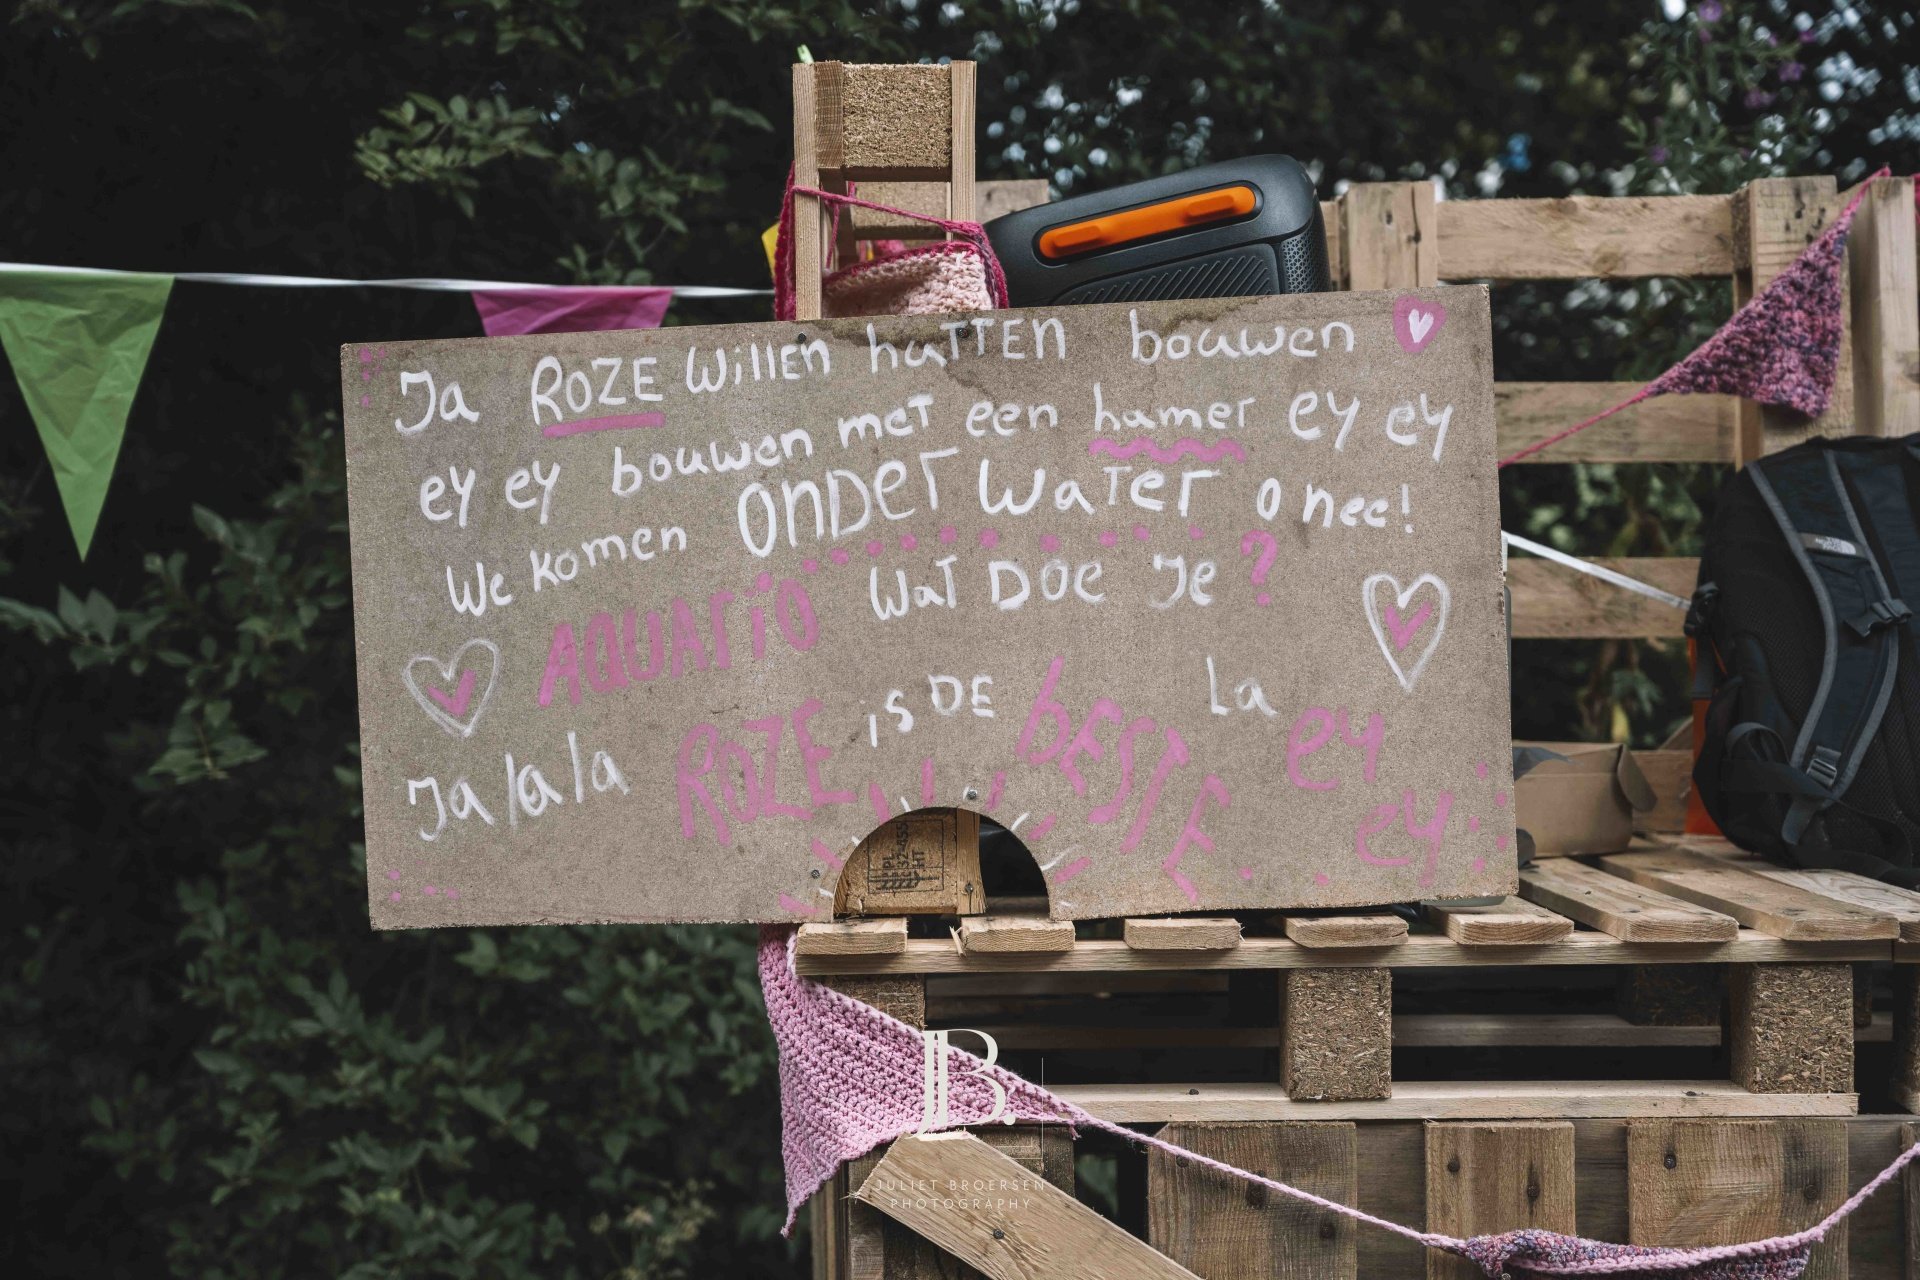 Ja ROZE willen hutten bouwen
ey ey bouwen met een hamer ey ey
We komen onder water o nee!
AQUARIO Wat Doe Je?
Ja lalala ROZE is DE BESTE la ey
ey
THE NORTH FACE
JB.
JULIET BROERSEN
PHOTOGRAPHY